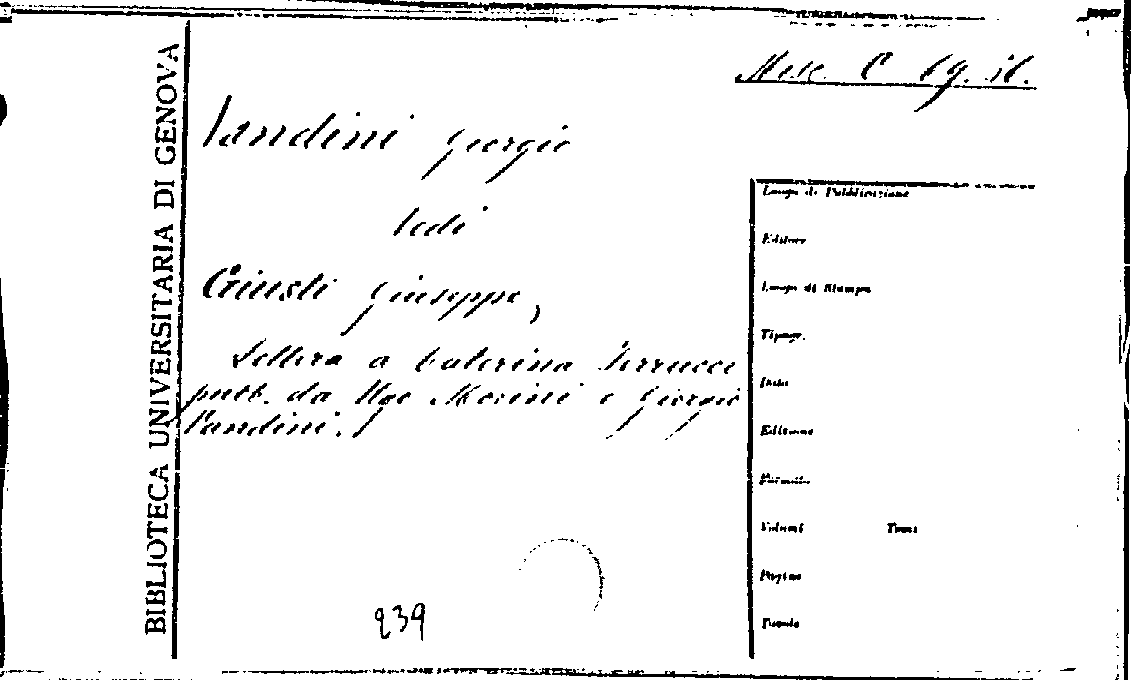 BIBLIOTECA UNIVERSITARIA DI GENOVA
Misc. C 69. 31.
Vandini Giorgio
Vedi
Giusti Giuseppe,
Lettera a Caterina Ferrucci
pubb. da Ugo Morini e Giorgio
Vandini.
Luogo di Pubblicazione
Editore
Luogo di Stampa
Tipogr.
Data
Edizione
Formato
Volumi Tomi
Pagine
239